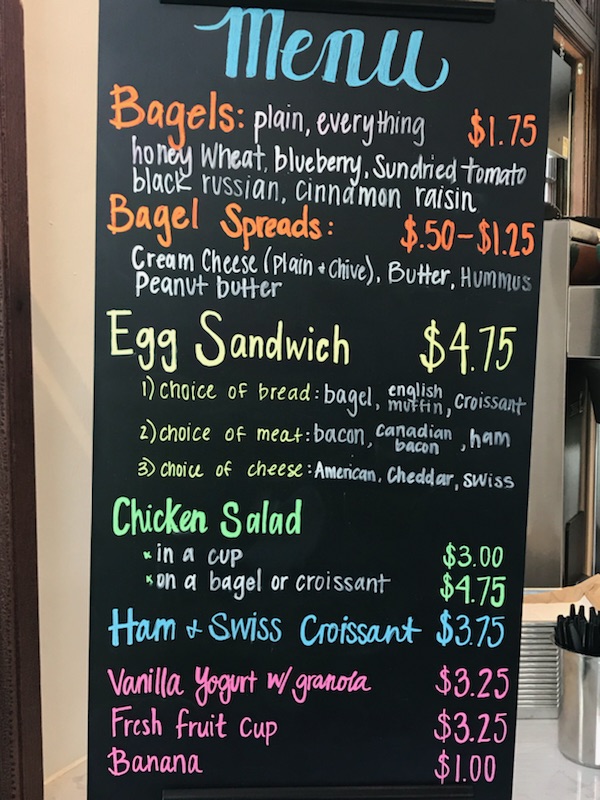 Menu
Bagels: plain, everything $1.75
honey Wheat, blueberry, Sundried tomato
black russian, cinnamon raisin
Bagel Spreads: $.50-$1.25
Cream Cheese (plain + chive), Butter, Hummus
Peanut butter
Egg Sandwich $4.75
1) choice of bread: bagel, english muffin, croissant
2) choice of meat: bacon, canadian bacon, ham
3) choice of cheese: American, Cheddar, swiss
Chicken Salad
× in a cup $3.00
× on a bagel or croissant $4.75
Ham + Swiss Croissant $3.75
Vanilla Yogurt w/ granola $3.25
Fresh fruit cup $3.25
Banana $1.00